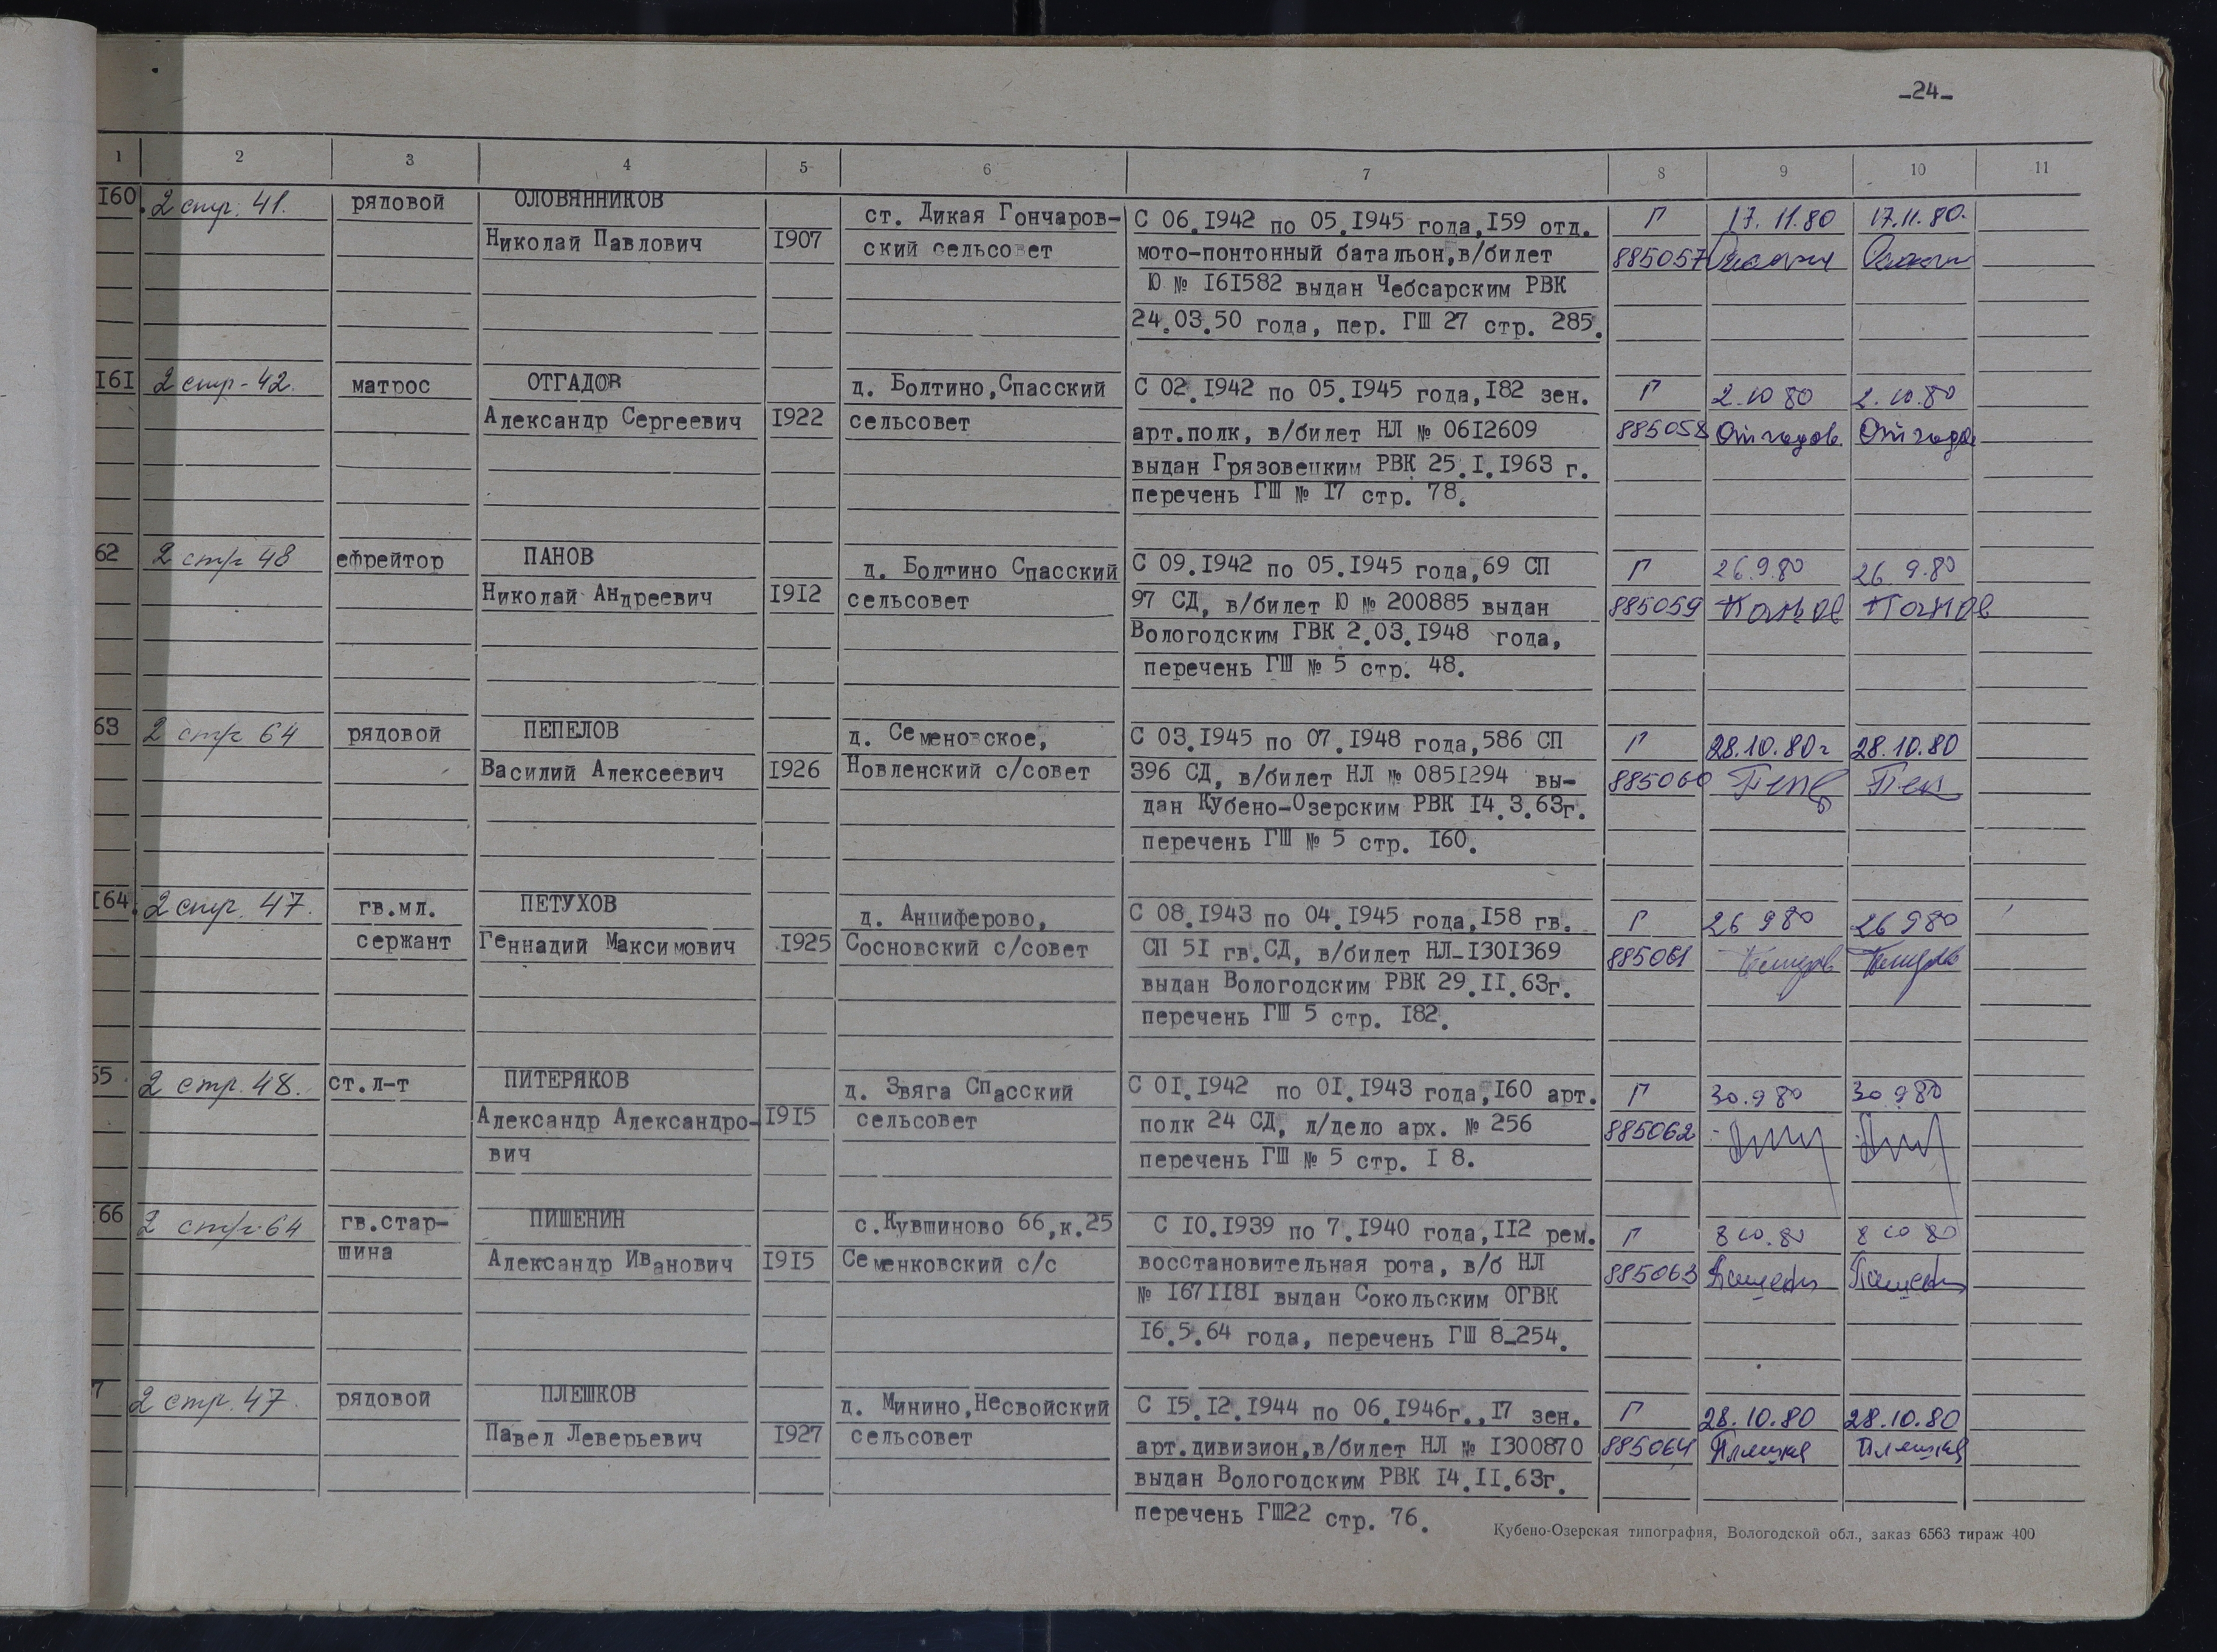 -24-
1 2 3 4 5 6 7 8 9 10 11
160. 2 стр. 41. рядовой ОЛОВЯННИКОВ
ст. Дикая Гончаров- С 06.1942 по 05.1945 года,159 отд. Г 17.11.80 17.11.80.
Николай Павлович 1907 ский сельсовет мото-понтонный батальон,в/билет 885057
Ю № 161582 выдан Чебсарским РВК
24.03.50 года, пер. ГШ 27 стр. 285.
161 2 стр-42. матрос ОТГАДОВ д. Болтино,Спасский С 02.1942 по 05.1945 года,182 зен. Г 2.10 80 2.10.80
Александр Сергеевич 1922 сельсовет арт.полк, в/билет НЛ № 0612609 885058 Отгадов Отгадов
выдан Грязовецким РВК 25.1.1963 г.
перечень ГШ № 17 стр. 78.
62 2 стр 48 ефрейтор ПАНОВ д. Болтино Спасский С 09.1942 по 05.1945 года,69 СП Г 26.9.80 26.9.80
Николай Андреевич 1912 сельсовет 97 СД, в/билет Ю № 200885 выдан 885059 Панов Панов
Вологодским ГВК 2.03.1948 года,
перечень ГШ № 5 стр. 48.
63 2 стр 64 рядовой ПЕПЕЛОВ д. Семеновское, С 03.1945 по 07.1948 года,586 СП Г 28.10.80г 28.10.80
Василий Алексеевич 1926 Новленский с/совет 396 СД, в/билет НЛ № 0851294 вы- 885060
дан Кубено-Озерским РВК 14.3.63г.
перечень ГШ № 5 стр. 160.
164. 2 стр. 47. гв.мл. ПЕТУХОВ д. Анциферово, С 08.1943 по 04.1945 года,158 гв. Г 26 9 80 26 9 80
сержант Геннадий Максимович 1925 Сосновский с/совет СП 51 гв.СД, в/билет НЛ-1301369 885061
выдан Вологодским РВК 29.11.63г.
перечень ГШ 5 стр. 182.
65. 2 стр. 48. ст.л-т ПИТЕРЯКОВ д. Звяга Спасский С 01.1942 по 01.1943 года,160 арт. Г 30.9 80 30 9 80
Александр Александро- 1915 сельсовет полк 24 СД, л/дело арх. № 256 885062
вич перечень ГШ № 5 стр. 1 8.
66 2 стр. 64 гв.стар- ПИШЕНИН с.Кувшиново 66,к.25 С 10.1939 по 7.1940 года,112 рем. Г 8 10.80 8 10 80
шина Александр Иванович 1915 Семенковский с/с восстановительная рота, в/б НЛ 885063
№ 1671181 выдан Сокольским ОГВК
16.5.64 года, перечень ГШ 8-254.
7 2 стр. 47. рядовой ПЛЕШКОВ д. Минино,Несвойский С 15.12.1944 по 06.1946г.,17 зен. Г 28.10.80 28.10.80
Павел Леверьевич 1927 сельсовет арт.дивизион,в/билет НЛ № 1300870 885064
выдан Вологодским РВК 14.11.63г.
перечень ГШ22 стр. 76.
Кубено-Озерская типография, Вологодской обл., заказ 6563 тираж 400